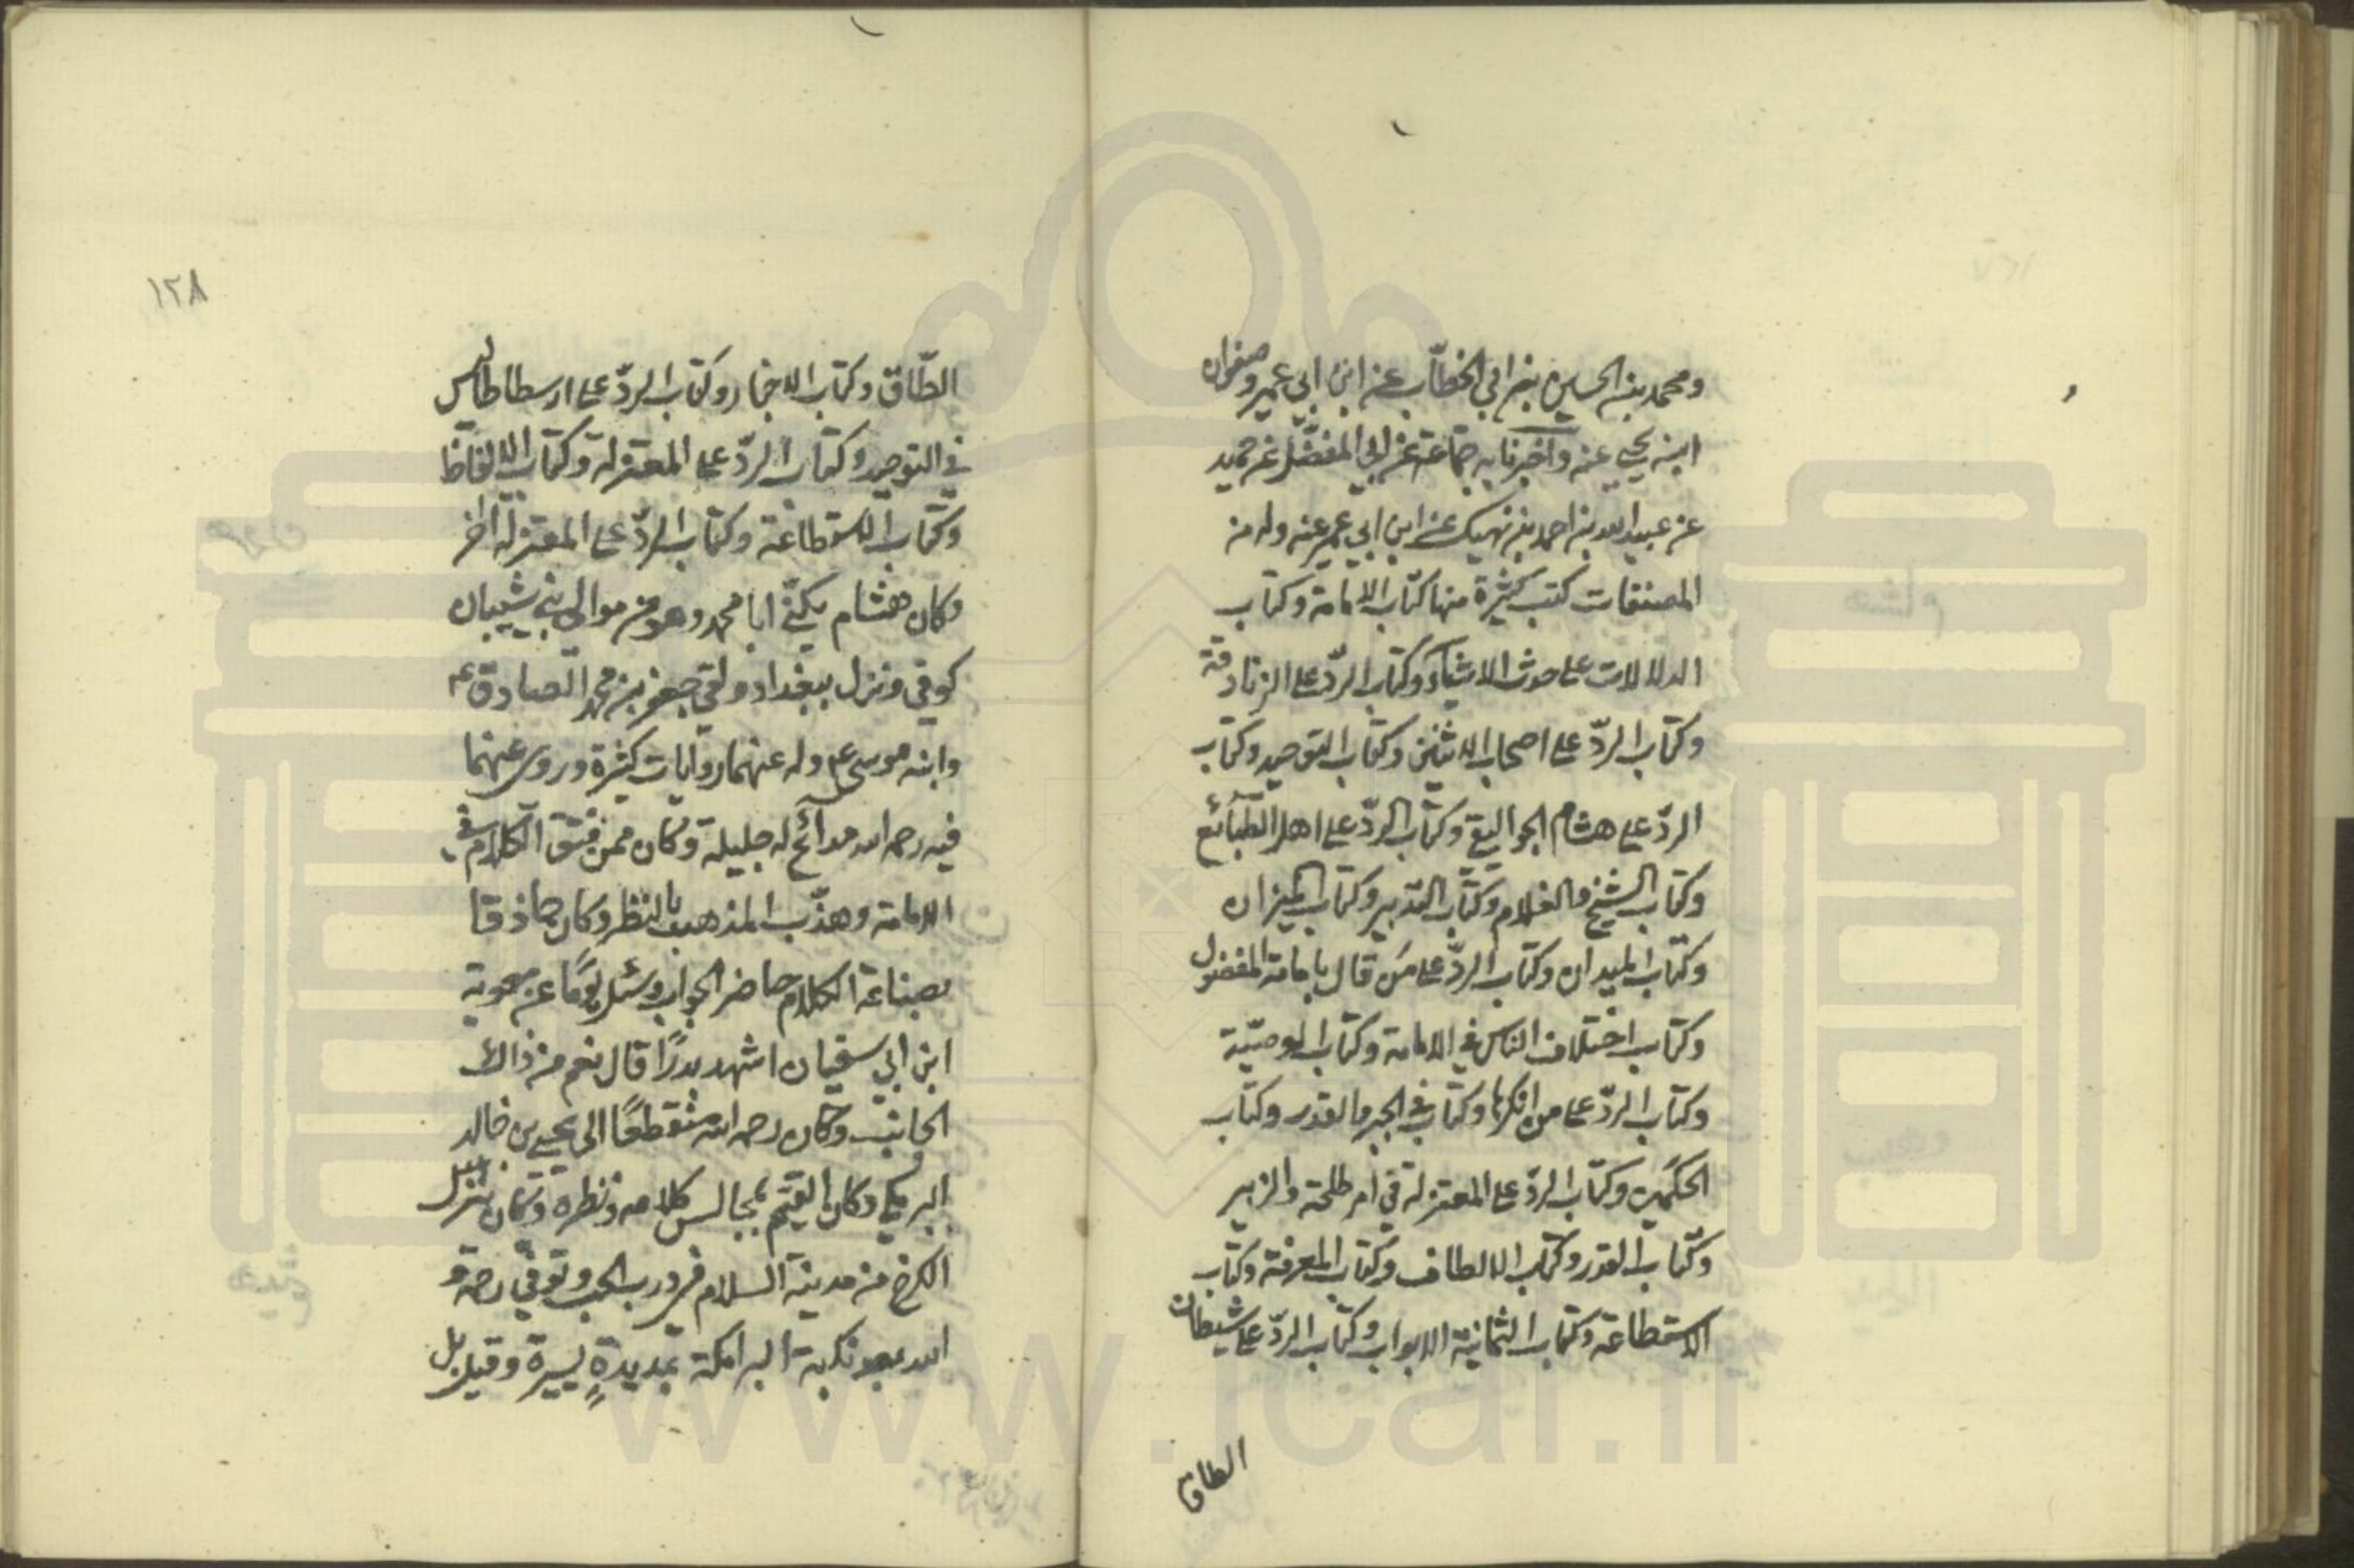 ومحمد بن الحسين بن ابي الخطّاب عن ابن ابي عمير وصفوان
ابن يحيى عنه واخبرنا به جماعة عن ابي المفضّل عن حميد
عن عبيد الله بن احمد بن نهيك عن ابن ابي عمير عنه وله من
المصنفات كتب كثيرة منها كتاب الامامة وكتاب
الدلالات على حدث الاشياء وكتاب الردّ على الزنادقة
وكتاب الردّ على اصحاب الاثنين وكتاب التوحيد وكتاب
الردّ على هشام الجواليقي وكتاب الردّ على اهل الطبائع
وكتاب الشيخ والغلام وكتاب التدبير وكتاب الميزان
وكتاب الميدان وكتاب الردّ على من قال بامامة المفضول
وكتاب اختلاف الناس في الامامة وكتاب الوصيّة
وكتاب الردّ على من انكرها وكتاب في الجبر والقدر وكتاب
الحكمين وكتاب الردّ على المعتزلة في امر طلحة والزبير
وكتاب القدر وكتاب الالطاف وكتاب المعرفة وكتاب
الاستطاعة وكتاب الثمانية الابواب وكتاب الردّ على شيطان
الطاق
١٢٨
الطّاق وكتاب الاخبار وكتاب الردّ على ارسطاطاليس
في التوحيد وكتاب الردّ على المعتزلة وكتاب الالفاظ
وكتاب الاستطاعة وكتاب الردّ على المعتزلة اخر
وكان هشام يكنّى ابا محمد وهو من موالي بني شيبان
كوفي ونزل ببغداد ولقي جعفر بن محمد الصادق ع
وابنه موسى ع وله عنهما روايات كثيرة وروى عنهما
فيه رحمه الله مدائح له جليلة وكان ممن فتق الكلام في
الامامة وهذّب المذهب بالنظر وكان حاذقا
بصناعة الكلام حاضر الجواب وسئل يومًا عن معوية
ابن ابي سفيان اشهد بدرًا قال نعم من ذاك
الجانب وكان رحمه الله منقطعًا الى يحيى بن خالد
البرمكي وكان القيّم بمجالس كلامه ونظره وكان ينزل
الكرخ من مدينة السلام في درب الجب وتوفي رحمة
الله بعد نكبة البرامكة بمديدةٍ يسيرة وقيل بل
www.ical.ir